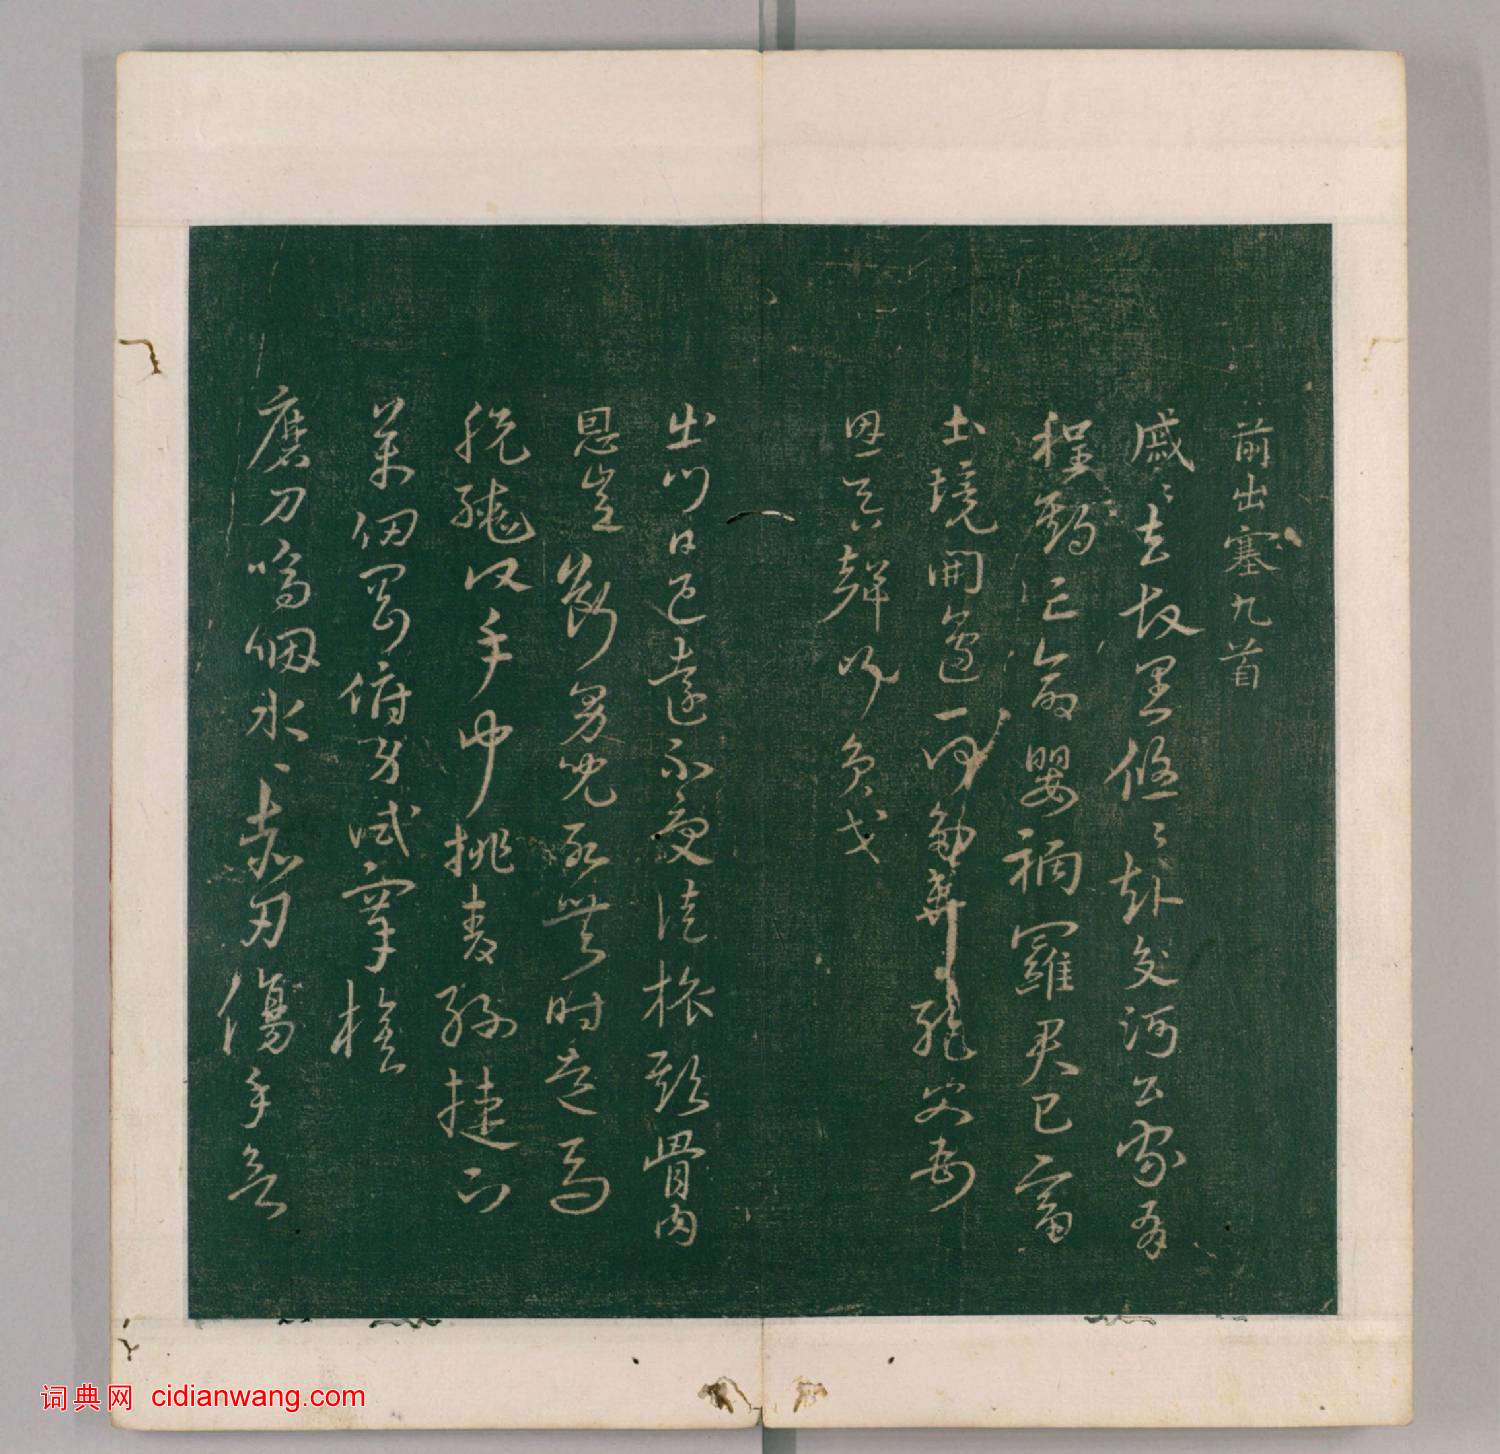 前出塞九首
戚〻去故里悠〻赴交河公家有
程期亡命嬰禍羅君已富
土境開邊一何多棄絕父母
恩吞聲行負戈
出門日已遠不受徒旅欺骨肉
恩豈斷男兒死無時走馬
脫轡頭手中挑青絲捷下
萬仞岡俯身試搴旗
磨刀嗚咽水〻赤刃傷手欲
词典网 cidianwang.com